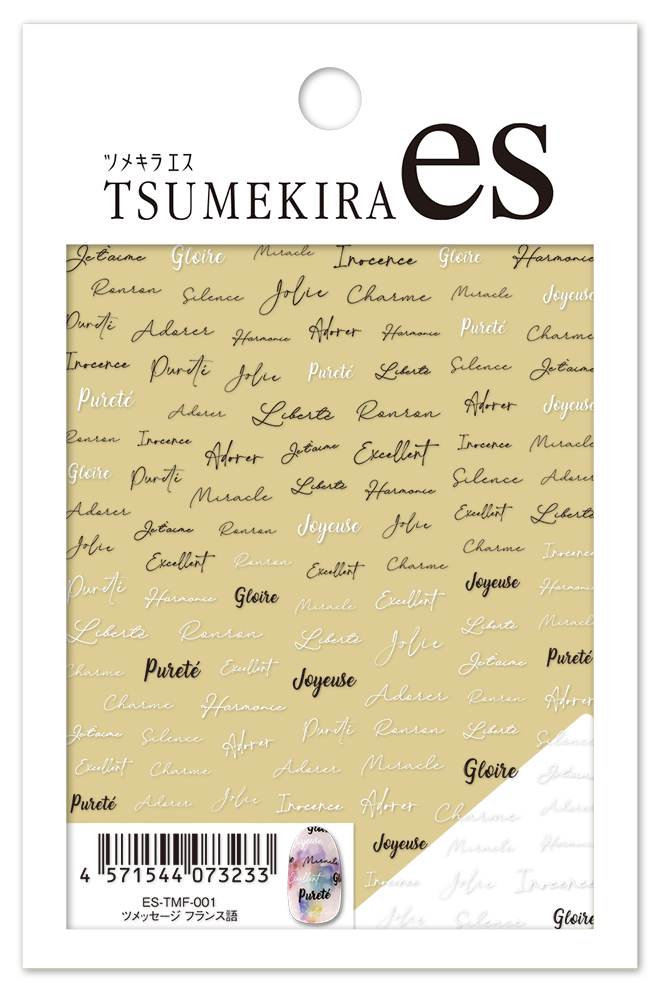 ツメキラエス
TSUMEKIRA es
Je t'aime Gloire Miracle Inocence Gloire Harmonie
Ronron Silence Jolie Charme Miracle Joyeuse
Pureté Adorer Harmonie Adorer Harmonie Pureté Charme
Inocence Pureté Jolie Pureté Liberté Silence Je t'aime
Pureté Adorer Liberté Ronron Adorer Joyeuse
Ronron Inocence Adorer Je t'aime Excellent Inocence Miracle
Gloire Pureté Miracle Liberté Harmonie Silence Adorer
Adorer Je t'aime Ronron Joyeuse Jolie Excellent Liberté
Jolie Excellent Ronron Excellent Charme Charme Inocence
Pureté Harmonie Gloire Miracle Excellent Joyeuse Harmonie
Liberté Ronron Liberté Jolie Liberté Miracle
Charme Pureté Excellent Joyeuse Je t'aime Pureté
Charme Harmonie Adorer Ronron Adorer
Je t'aime Silence Adorer Pureté Ronron Liberté Silence
Excellent Charme Adorer Miracle Gloire Je t'aime
Pureté Adorer Jolie Inocence Adorer Charme Adorer
Joyeuse Miracle Harmonie
Inocence Jolie Inocence
Jolie Silence Gloire
4 571544 073233
ES-TMF-001
ツメッセージ フランス語
Miracle
Excellent
Pureté